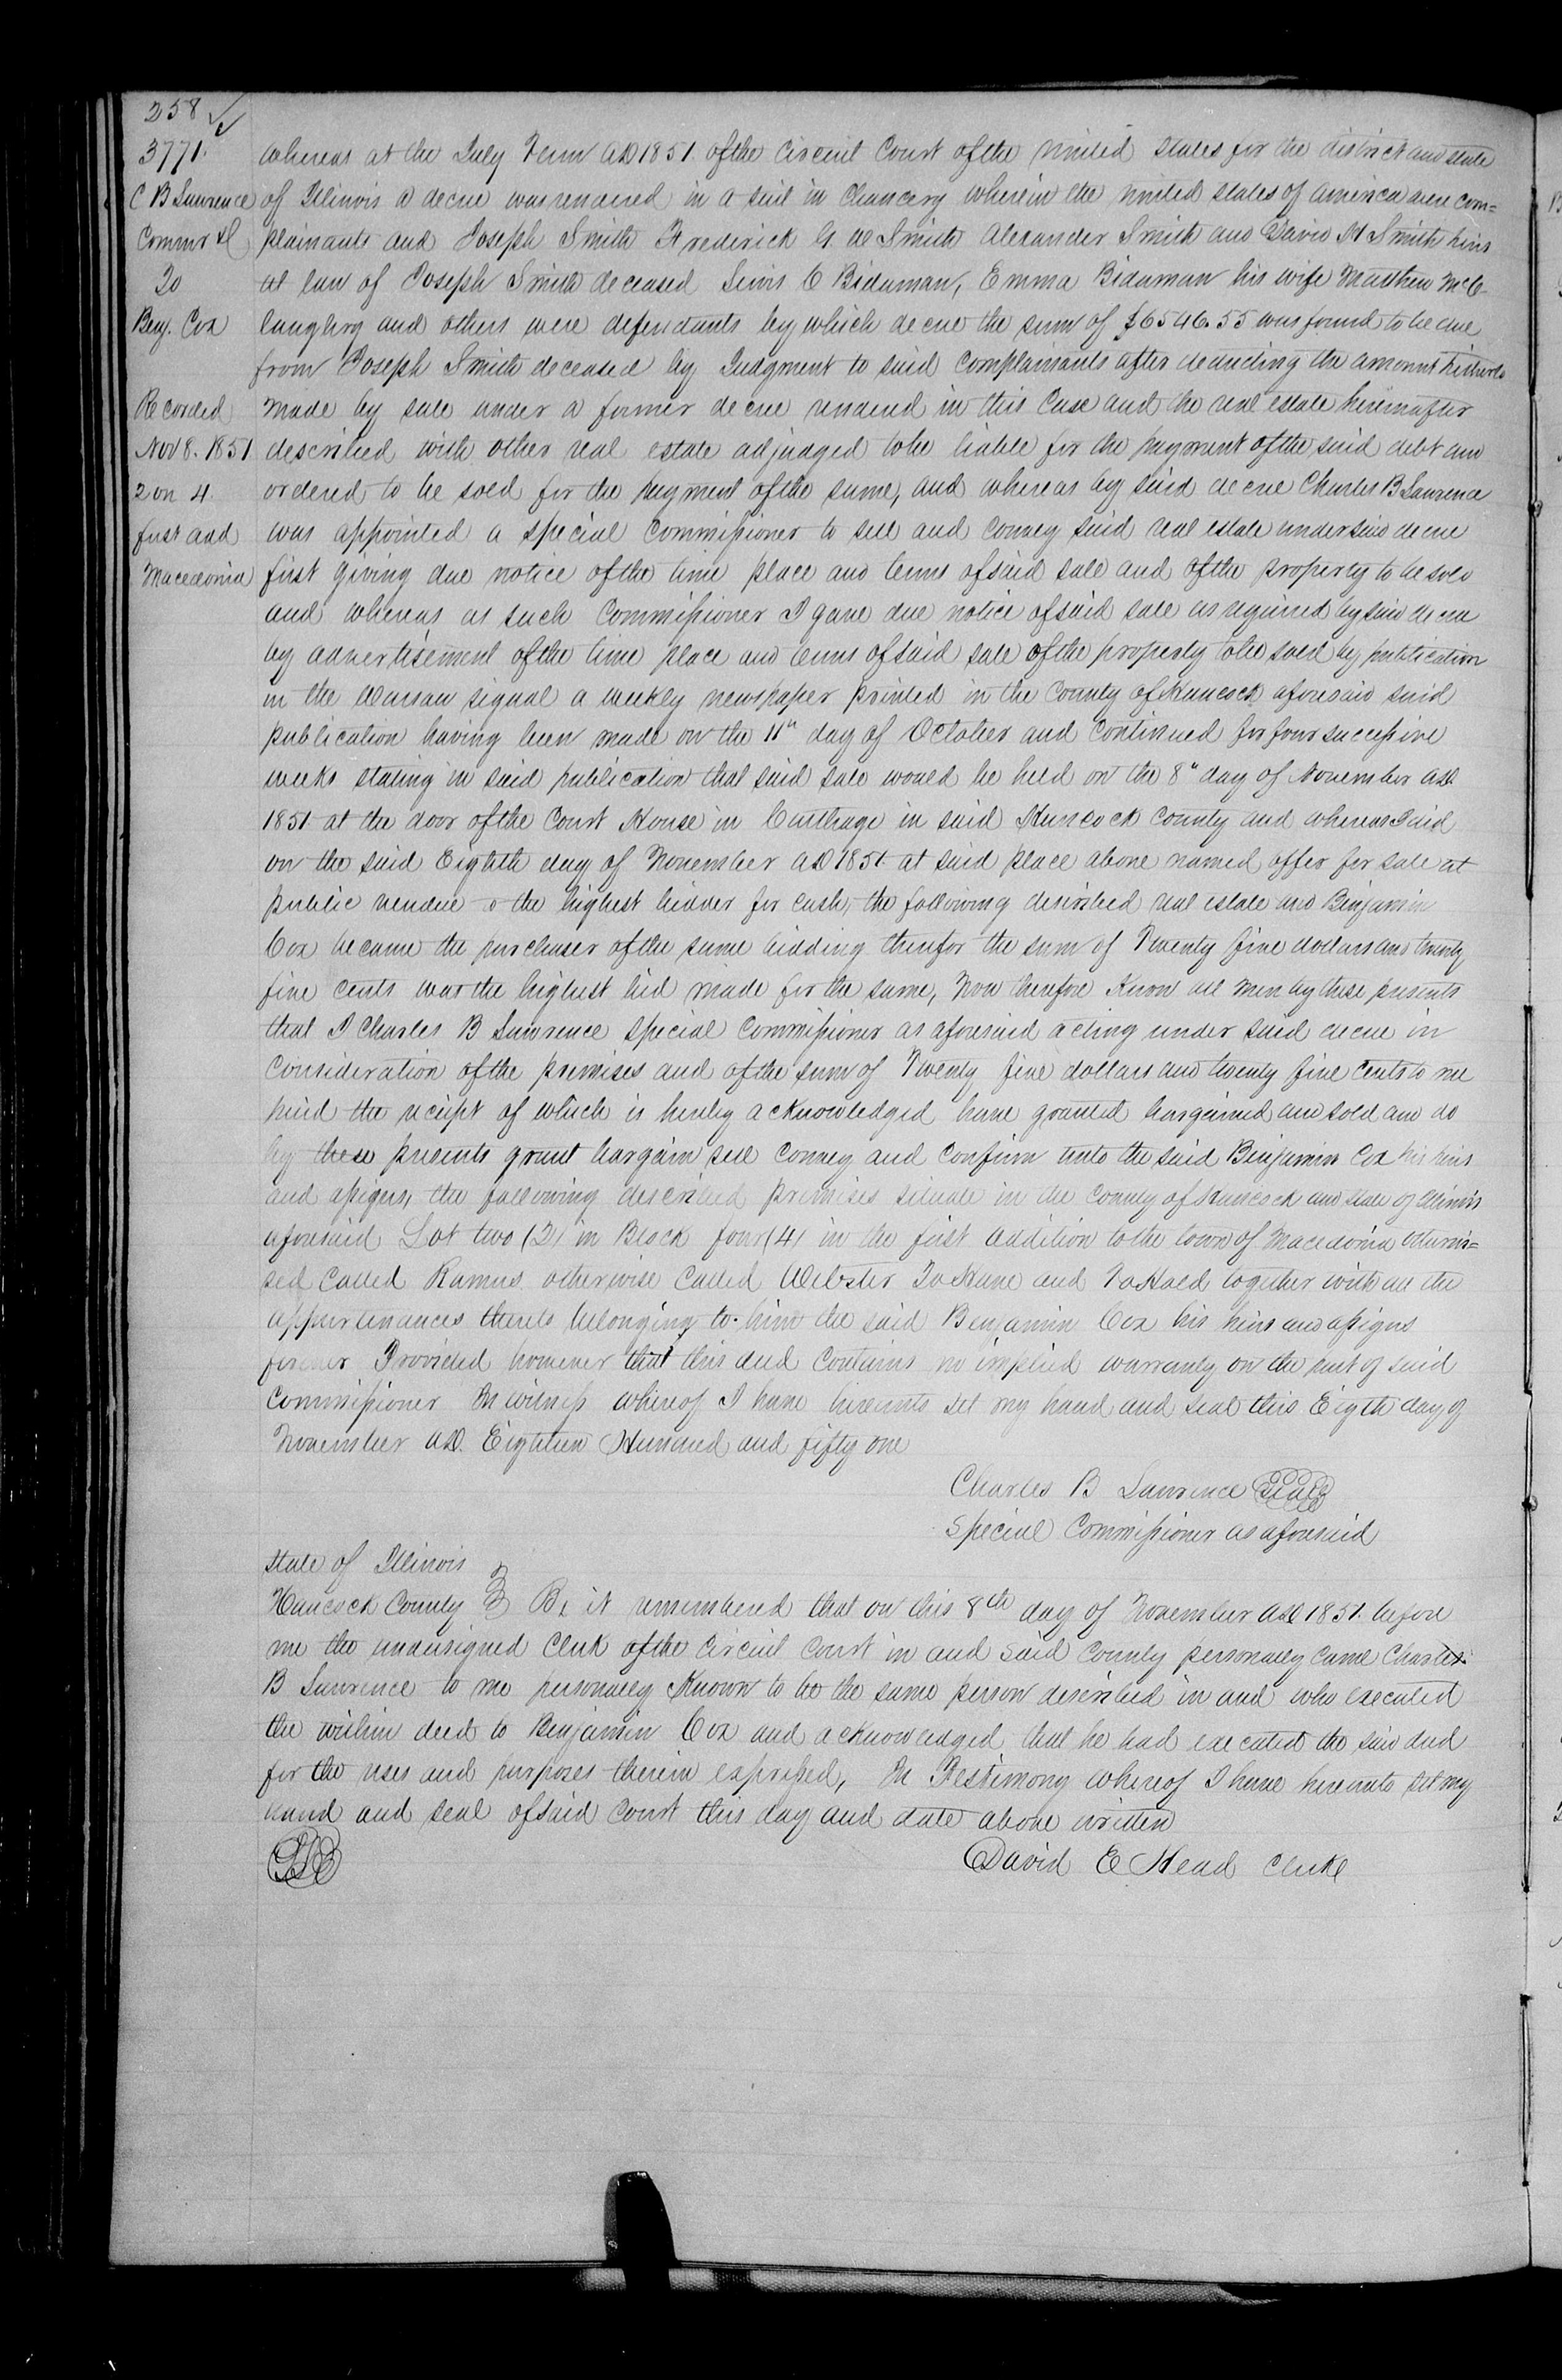 258
3771.
C B Lawrence
Commr &c
To
Benj. Cox
Recorded
Nov 8. 1851
2 on 4.
first add
Macedonia
whereas at the July Term AD 1851. of the Circuit Court of the United States for the district and state
of Illinois a decree was rendered in a suit in Chancery wherein the United States of America were com=
plainants and Joseph Smith Frederick G. W Smith Alexander Smith and David H Smith heirs
at law of Joseph Smith deceased Lewis C Bidaman, Emma Bidaman his wife Matthew McC
laughny and others were defendants by which decree the sum of $6546.55 was found to be due
from Joseph Smith deceased by Judgment to said Complainants after deducting the amount hitherto
made by sale under a former decree rendered in this Case and the real estate hereinafter
described with other real estate adjudged to be liable for the payment of the said debt and
ordered to be sold for the payment of the same, and whereas by said decree Charles B Lawrence
was appointed a special Commissioner to sell and convey said real estate under said decree
first giving due notice of the time place and terms of said sale and of the property to be sold
and whereas as such Commissioner I gave due notice of said sale as required by said decree
by advertisement of the time place and terms of said sale of the property to be sold by publication
in the Warsaw signal a weekly newspaper printed in the County of Hancock aforesaid said
publication having been made on the 11th day of October and continued for four successive
weeks stating in said publication that said sale would be held on the 8th day of November AD.
1851 at the door of the Court House in Carthage in said Hancock County and whereas I did
on the said Eighth day of November AD 1851 at said place above named offer for sale at
public vendue o the highest bidder for cash, the following described real estate and Benjamin
Cox became the purchaser of the same bidding therefor the sum of Twenty five dollars and twenty
five cents was the highest bid made for the same, Now therefore Know all men by these presents
that I Charles B Lawrence special Commissioner as aforesaid acting under said decree in
Consideration of the premises and of the sum of Twenty five dollars and twenty five cents to me
paid the receipt of which is hereby acknowledged have granted bargained and sold and do
by these presents grant bargain sell convey and confirm unto the said Benjamin Cox his heirs
and assigns, the following described premises situate in the County of Hancock and State of Illinois
aforesaid Lot two (2) in Block four (4) in the first addition to the town of Macedonia otherwi=
sed called Ramus otherwise called Webster To Have and To Hold together with all the
appurtenances thereto belonging to him the said Benjamin Cox his heirs and assigns
forever Provided however that this deed contains no implied warranty on the part of said
Commissioner In witness whereof I have hereunto set my hand and seal this Eigth day of
November AD. Eighteen Hundred and fifty one
Charles B Lawrence Seal
Special Commissioner as aforesaid
State of Illinois
Hancock County Be it remembered that on this 8th day of November AD 1851. before
me the undersigned Clerk of the Circuit Court in and said County personally came Charles
B Lawrence to me personally Known to be the same person described in and who executed
the within deed to Benjamin Cox and acknowledged that he had executed the said deed
for the uses and purposes therein expressed, In Testimony whereof I have hereunto set my
hand and seal of said Court this day and date above written
David E Head Clerk